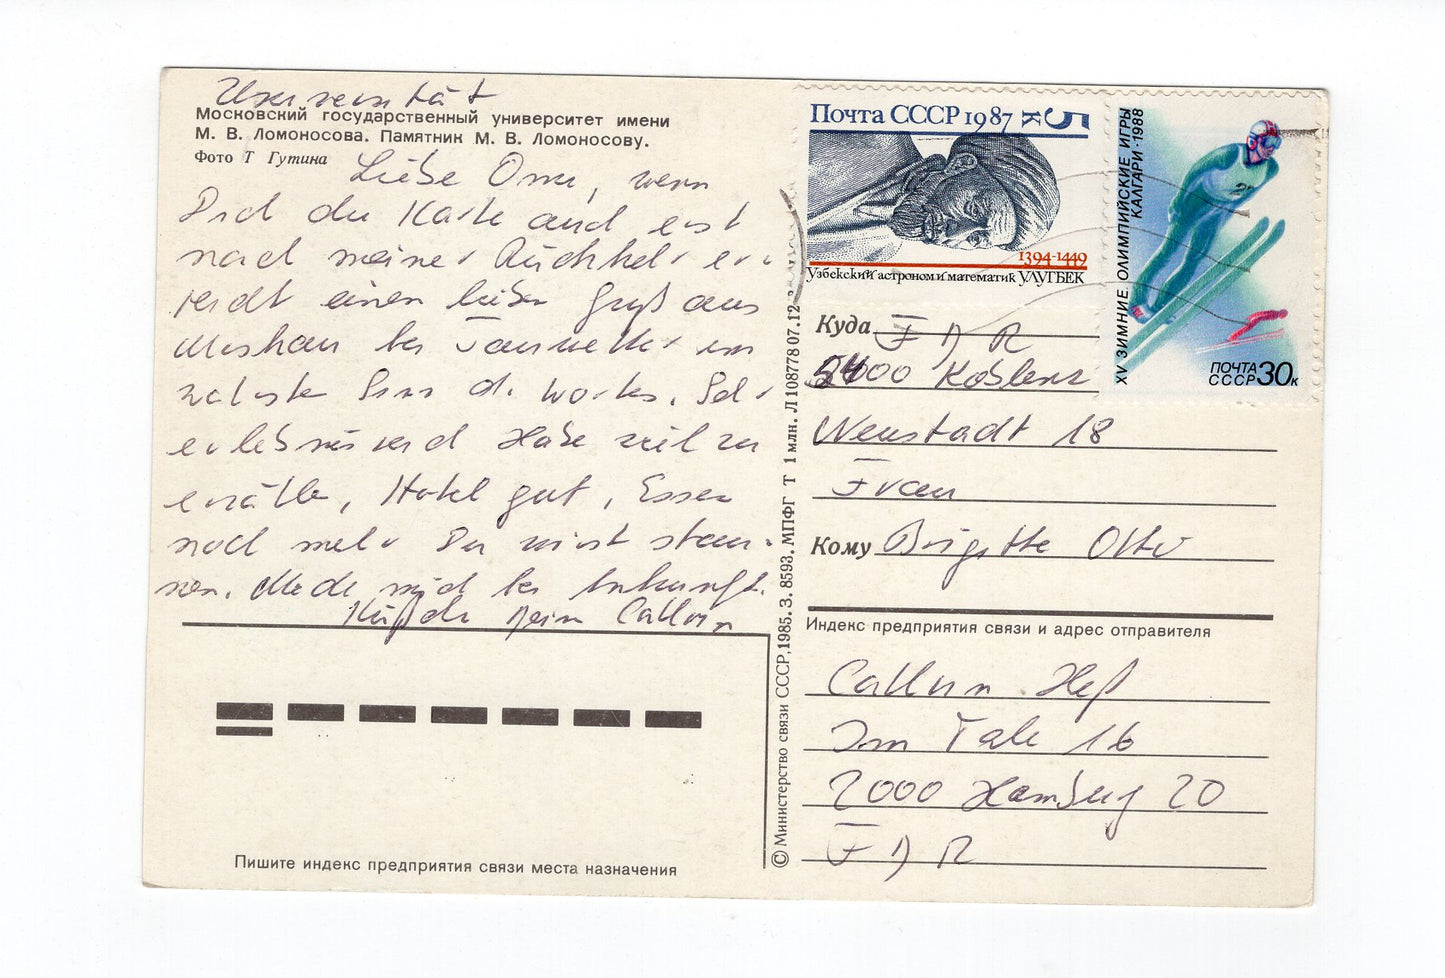 Universität
Московский государственный университет имени
М. В. Ломоносова. Памятник М. В. Ломоносову.
Фото Т Гутина
Liebe Omi, wenn
Dich die Karte auch erst
nach meiner Rückkehr er-
reicht einen lieben Gruß aus
Moskau bei Tauwetter im
wahrsten Sinn d. Wortes. Sehr
erlebnisreich Habe viel zu
erzälen, Hotel gut, Essen
noch mehr Du wirst stau-
nen. Melde mich bei Ankunft.
Küßchen Dein Callum
Пишите индекс предприятия связи места назначения
© Министерство связи СССР, 1985. З. 8593. МПФГ Т 1 млн. Л108778 07.12
Почта СССР 1987 5 к
1394-1449
Узбекский астроном и математик УЛУГБЕК
XV ЗИМНИЕ ОЛИМПИЙСКИЕ ИГРЫ
КАЛГАРИ·1988
ПОЧТА
СССР 30к
Куда F D R
5400 Koblenz
Neustadt 18
Frau
Кому Brigitte Otto
Индекс предприятия связи и адрес отправителя
Callum Heß
Im Tale 16
2000 Hamburg 20
F D R